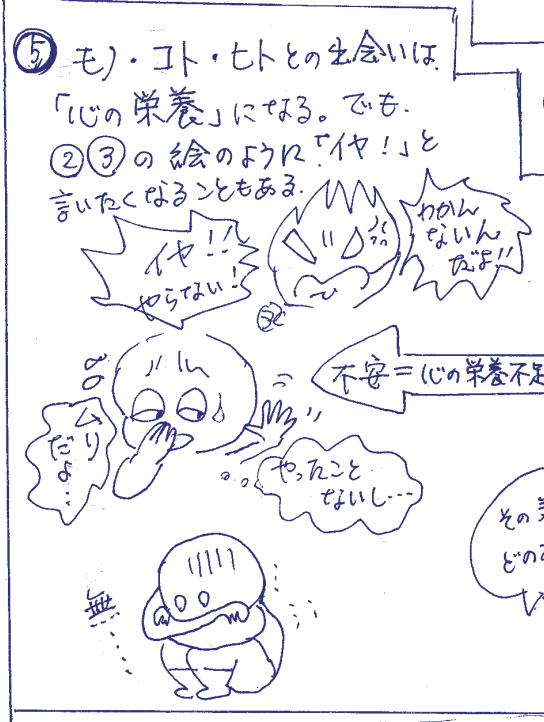 ⑤ モノ・コト・ヒトとの出会いは、
「心の栄養」になる。でも、
②③の絵のように「イヤ!」と
言いたくなることもある。
イヤ!!
やらない!
わかん
ないん
だよ!!
不安=心の栄養不足
ムリ
だよ…
やったこと
ないし…
無……
その
どの